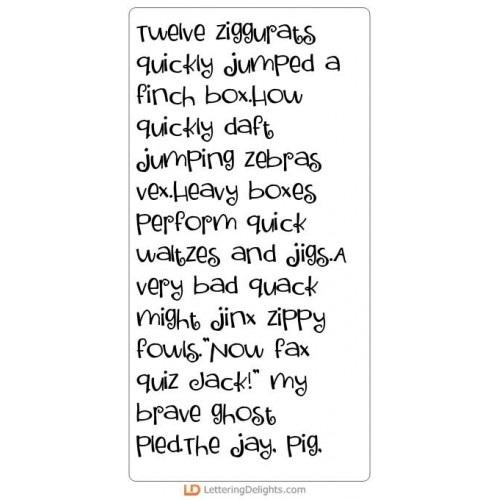 Twelve ziggurats
quickly jumped a
finch box.How
quickly daft
jumping zebras
vex.Heavy boxes
perform quick
waltzes and jigs.A
very bad quack
might jinx zippy
fowls."Now fax
quiz Jack!" my
brave ghost
pled.The jay, pig,
LD LetteringDelights.com